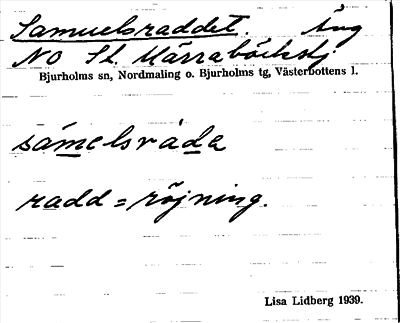 Samuelsraddet. Äng
NO St. Kärrabäckstj
Bjurholms sn, Nordmaling o. Bjurholms tg, Västerbottens l.
sámelsráda
radd = röjning.
Lisa Lidberg 1939.